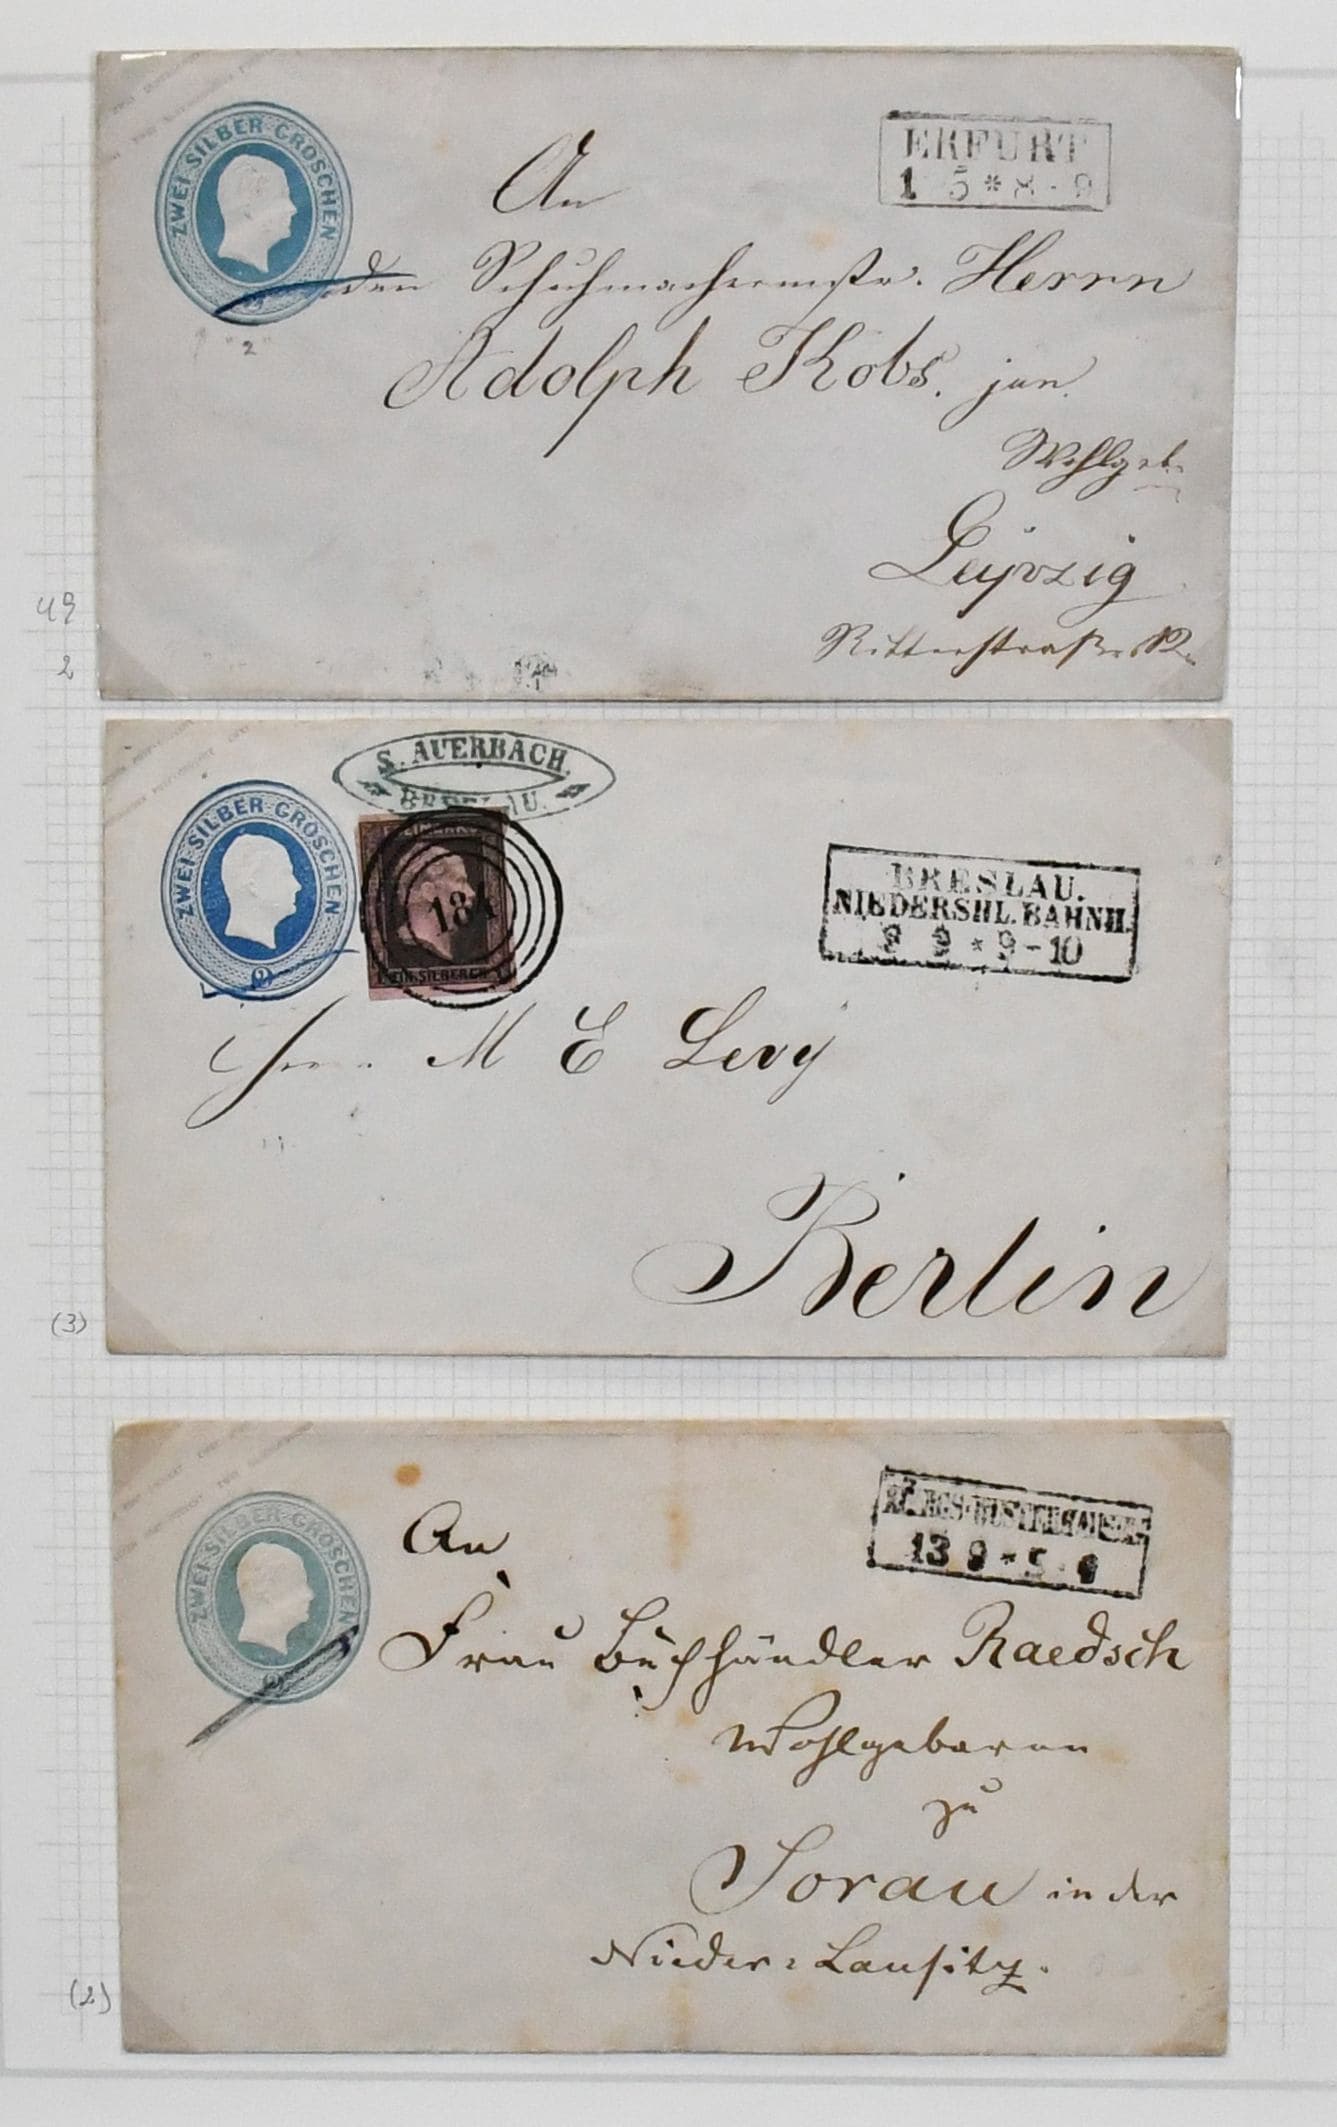 ZWEI SILBER GROSCHEN
2
"2"
ERFURT
1 5 * 8 - 9
An
den Schuhmachermstr. Herrn
Adolph Kobs. jun.
Wohlgeb.
Leipzig
Ritterstraße
49
2
ZWEI SILBER GROSCHEN
2
S. AUERBACH.
BRESLAU.
184
BRESLAU.
NIEDERSHL. BAHNH.
9 - 10
Herrn M E Levy
Berlin
(3)
ZWEI SILBER GROSCHEN
2
KÖNIGS-WUSTERHAUSEN
13 9 * 5 - 6
An
Frau Buchhändler Raedsch
Wohlgeboren
zu
Sorau in der
Nieder-Lausitz.
(2)